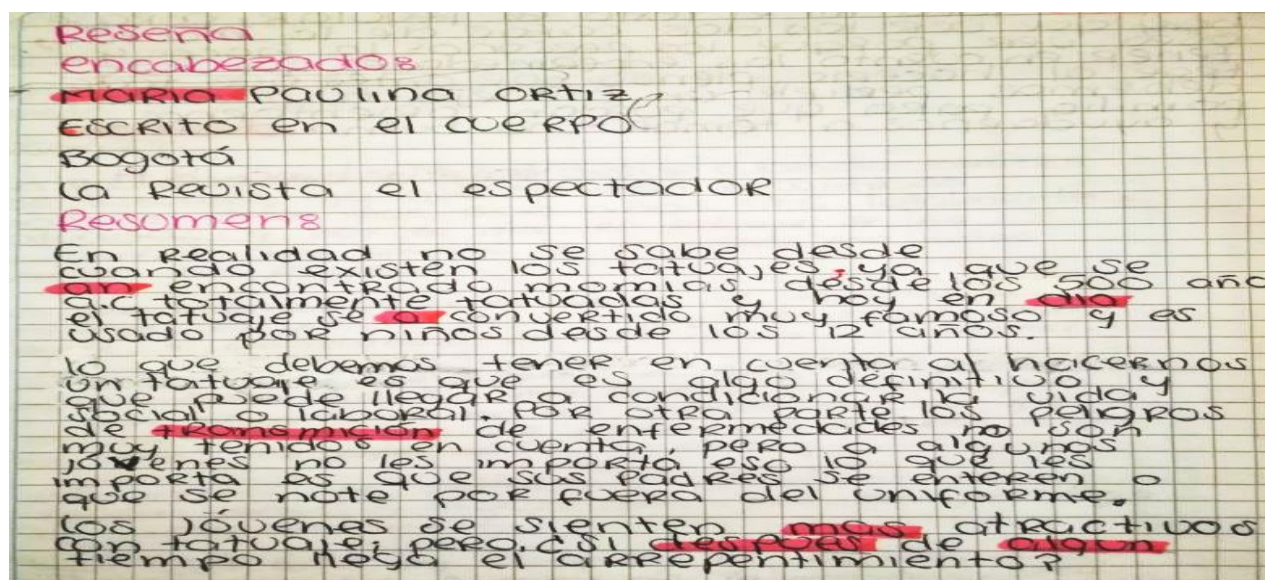 Reseña
encabezado:
MARIA PAULINA ORTIZ
ESCRITO en el CUERPO
Bogotá
la Revista el espectador
Resumen:
En Realidad no se sabe desde
cuando existen los tatuajes, ya que se
an encontrado momias desde los 500 año
a.c totalmente tatuadas y hoy en dia
el tatuaje se a convertido muy famoso y es
usado por niños desde los 12 años.
lo que debemos tener en cuenta al hacernos
un tatuaje es que es algo definitivo y
que puede llegar a condicionar la vida
social o laboral. Por otra parte los peligros
de transmición de enfermedades no son
muy tenidos en cuenta, pero a algunos
jóvenes no les importá eso lo que les
importa es que sus padres se enteren o
que se note por fuera del uniforme.
los jóvenes se sienten mas atractivos
con tatuaje, pero, ¿si despues de algun
tiempo llega el arrepentimiento?